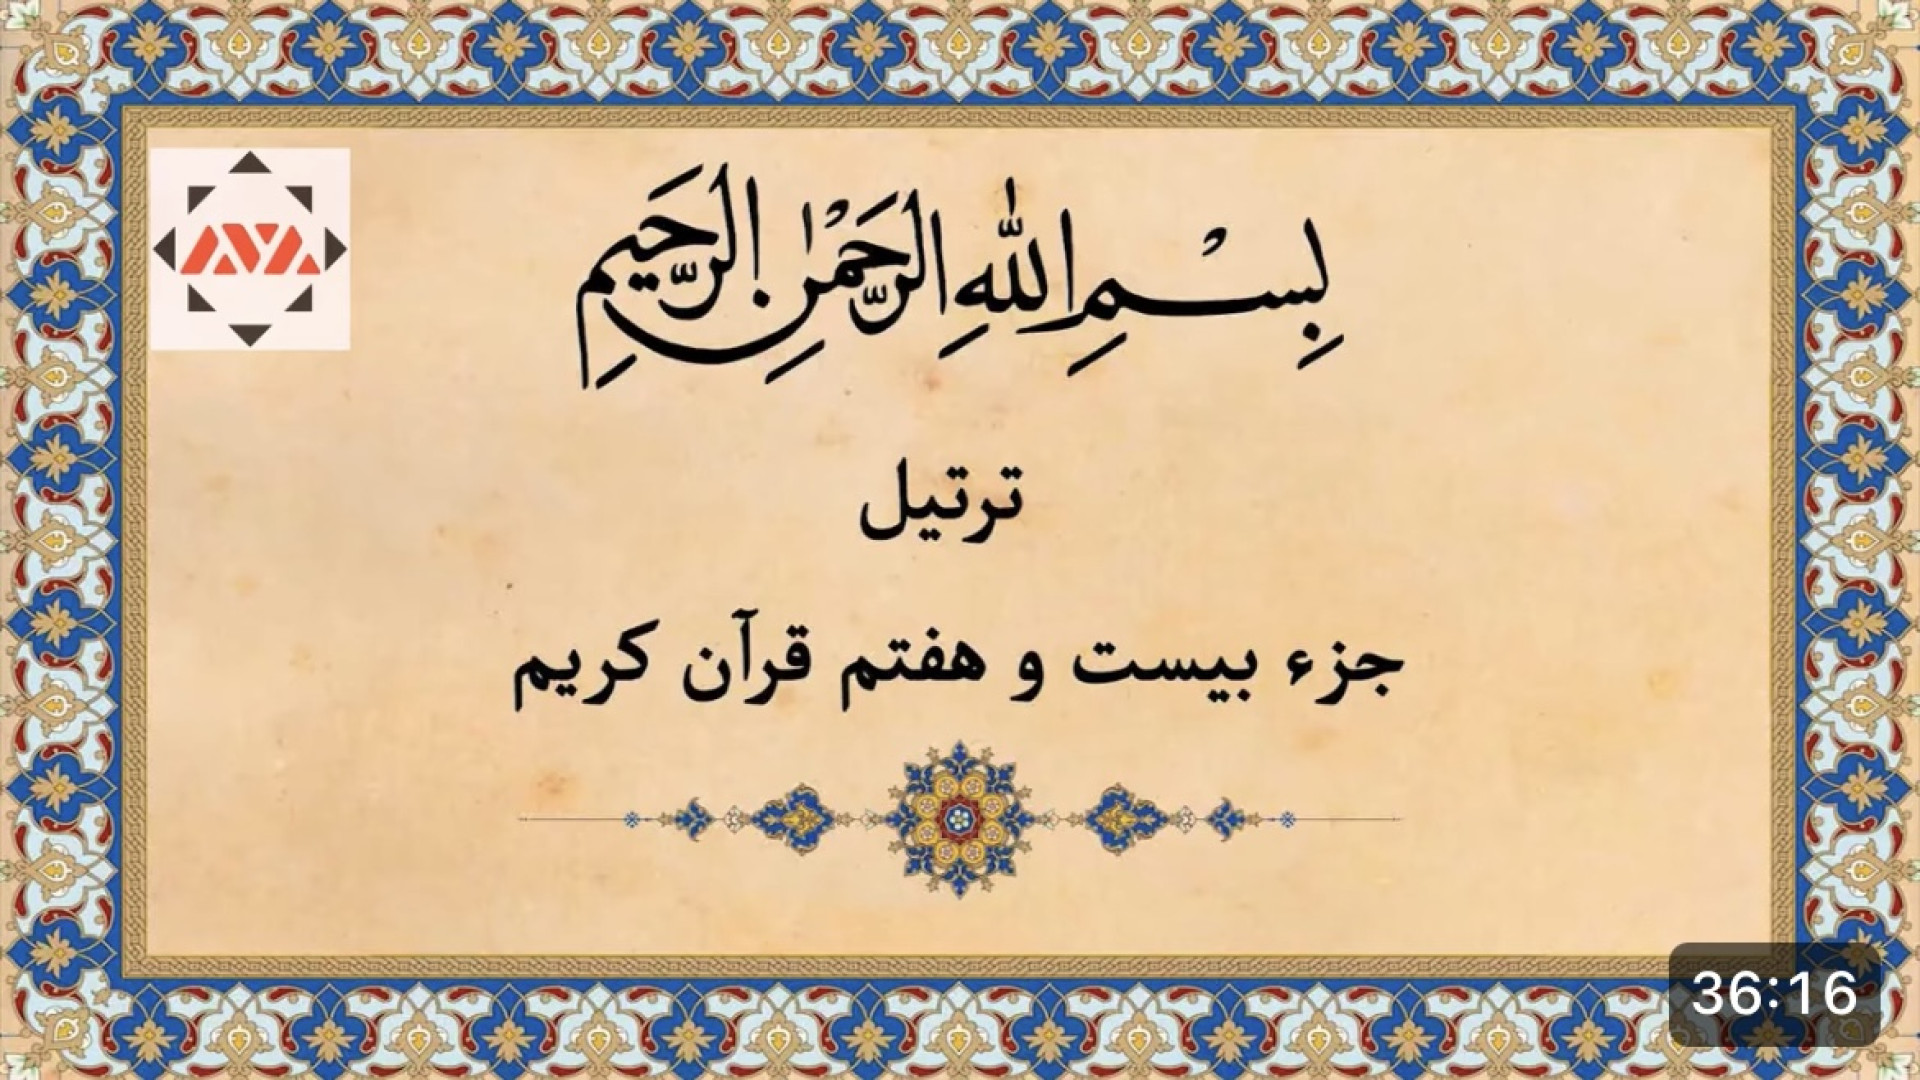 بِسْمِ اللهِ الرَّحْمٰنِ الرَّحِیمِ
ترتیل
جزء بیست و هفتم قرآن کریم
AVA
36:16